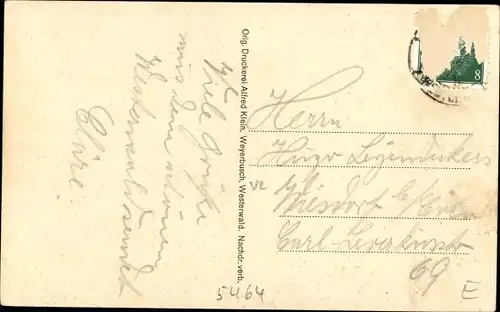 Viele Grüße
aus dem schönen
Westerwald sendet
Kläre.
Orig. Druckerei Alfred Klein, Weyerbusch, Westerwald. Nachdr. verb.
8
Herrn
Hugo
Wiesdorf
Carl Leverkusstr
69
5464
E